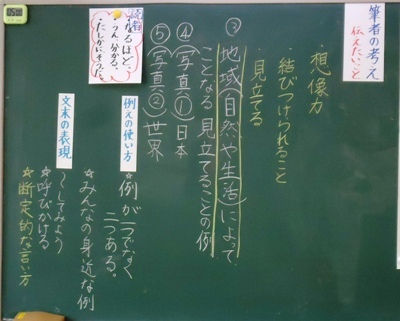 筆者の考え
伝えたいこと
想像力
・結びつけられること
・見立てる
③地域(自然や生活)によって、
ことなる 見立てることの例
④(写真①)日本
⑤(写真②)世界
読者
なるほど、
うん、分かる、
たしかにそうだ。
例えの使い方
☆例が一つでなく
二つある。
☆みんなの身近な例
文末の表現
〜してみよう
☆呼びかける
☆断定的な言い方